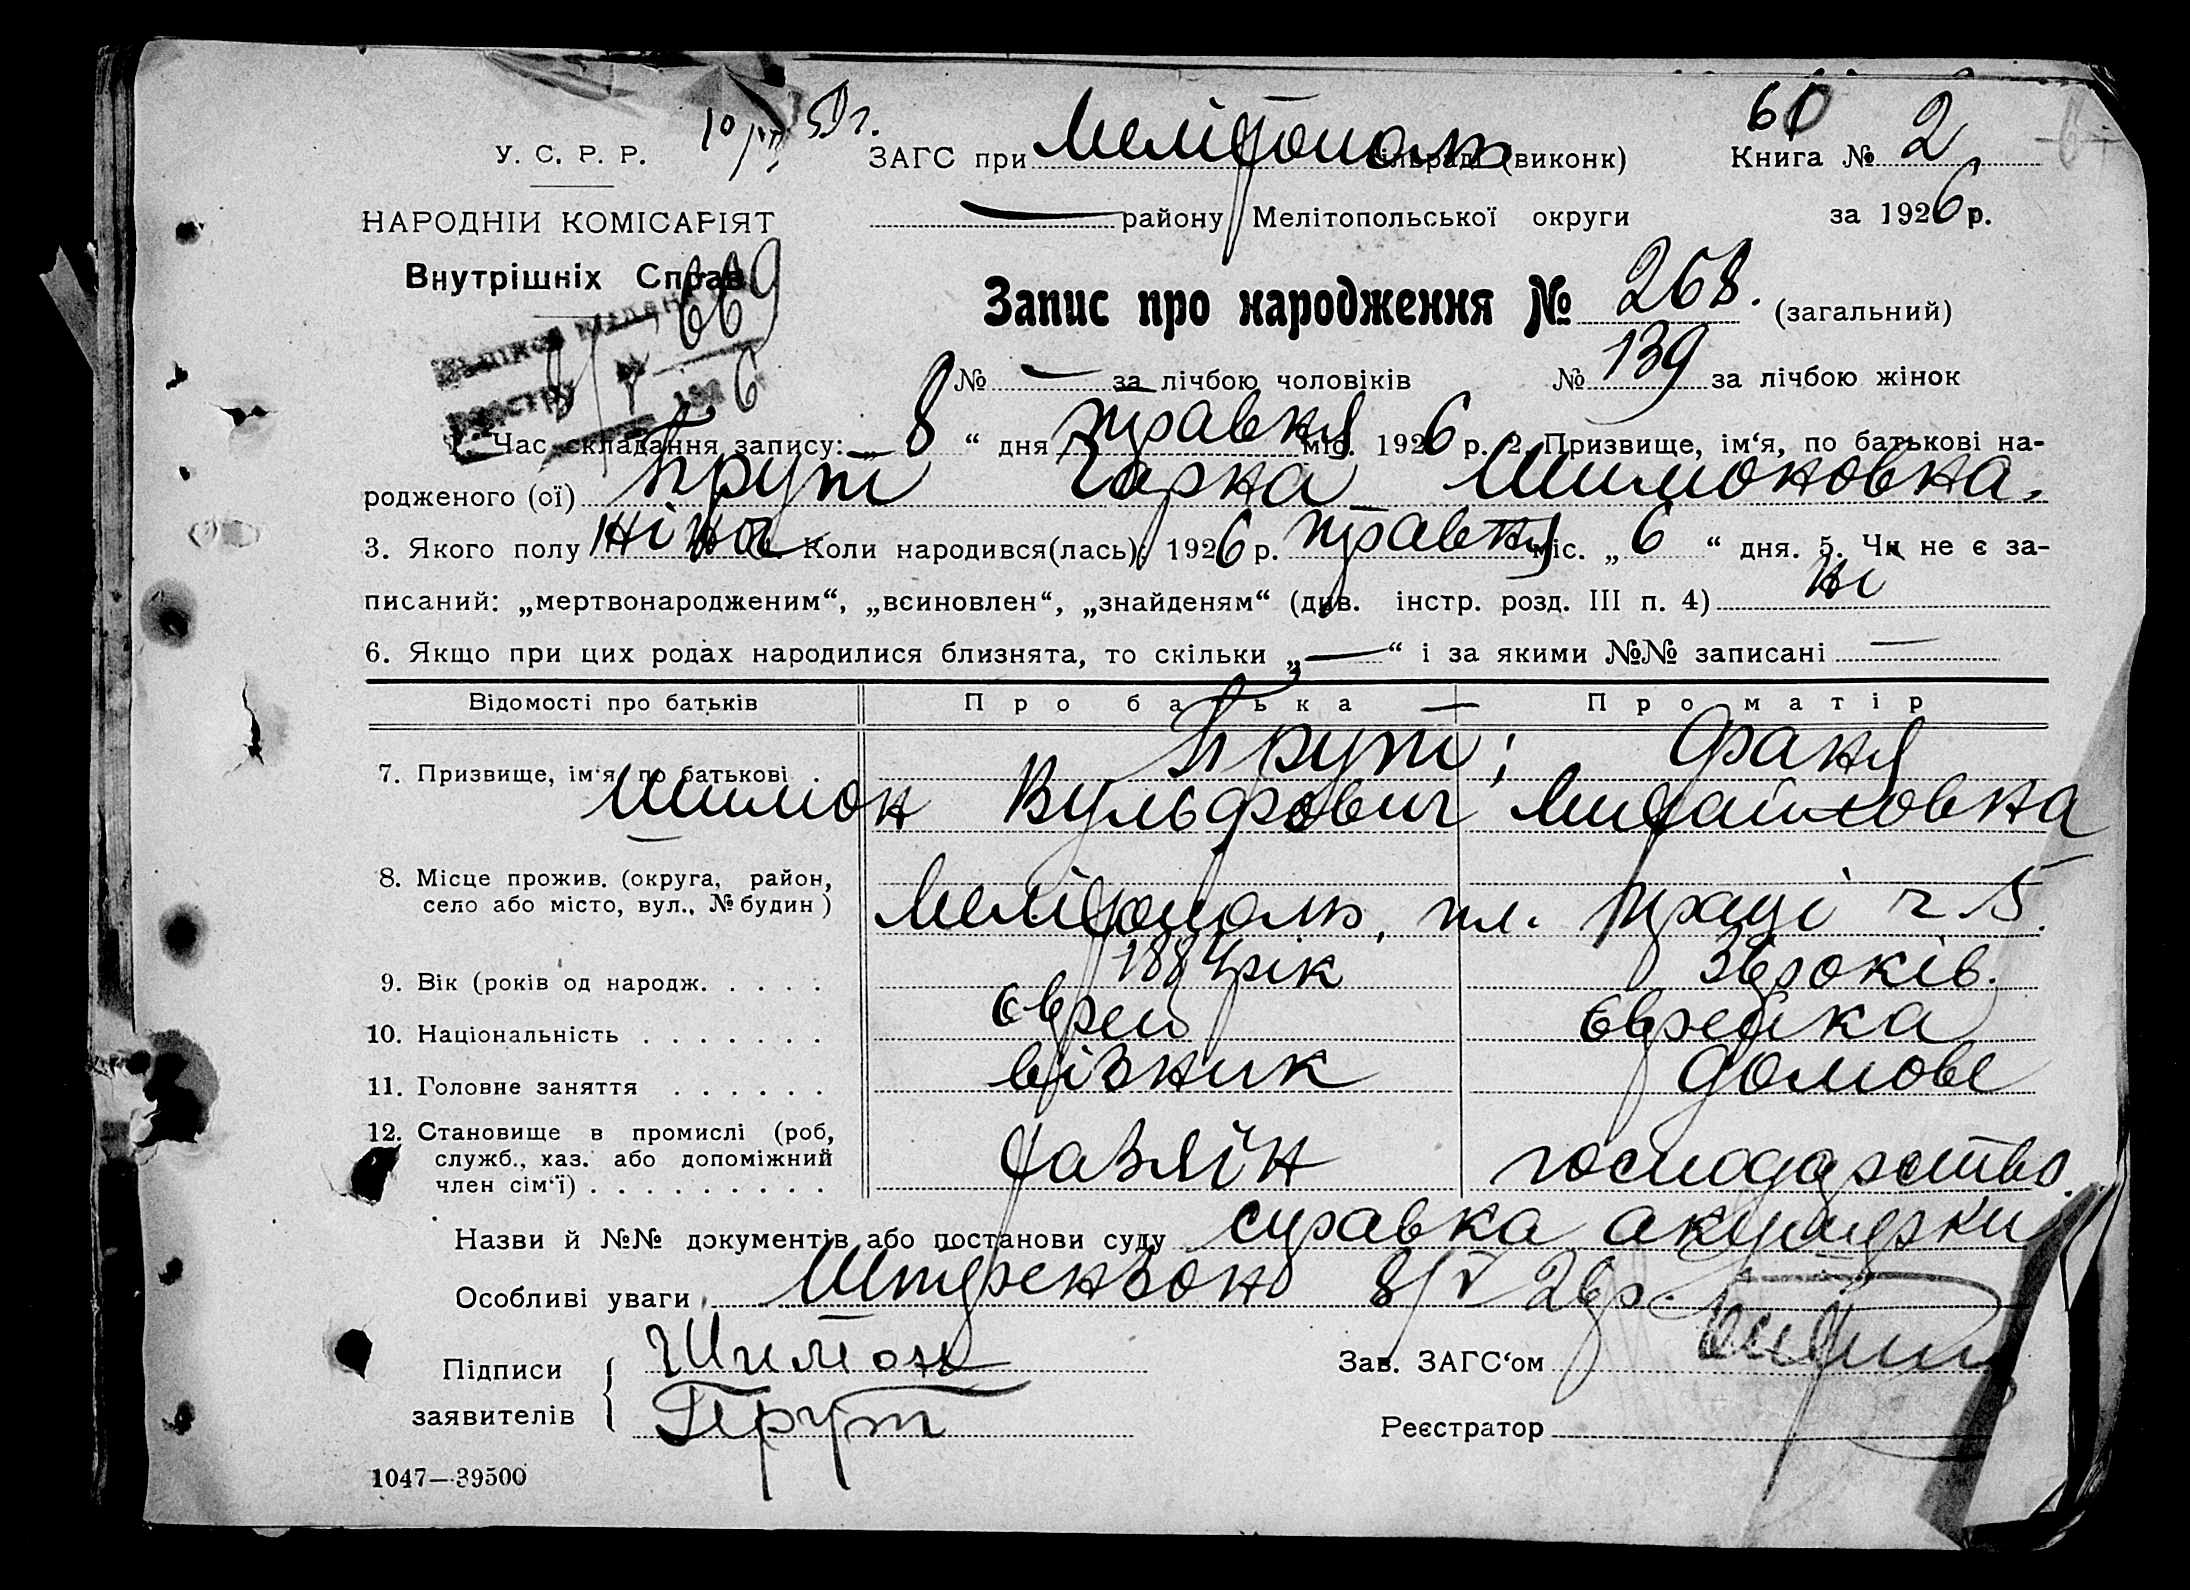 60
10/VII 50 г.
У. С. Р. Р. ЗАГС при Мелітополь (виконк) Книга № 2
НАРОДНІЙ КОМІСАРІЯТ — району Мелітопольської округи за 1926 р.
Внутрішніх Справ
669
Запис про народження № 268. (загальний)
8/V 1926
№ — за лічбою чоловіків № 139 за лічбою жінок
1. Час складання запису: „ 8 “ дня травня міс. 1926 р. 2. Призвище, ім‘я, по батькові на-
родженого (ої) Прут Сарна Шимоновна.
3. Якого полу жіноч. Коли народився(лась): 1926 р. травня міс. „ 6 “ дня. 5. Чи не є за-
писаний: „мертвонародженим“, „всиновлен“, „знайденям“ (див. інстр. розд. III п. 4) ні
6. Якщо при цих родах народилися близнята, то скільки „ — “ і за якими №№ записані —
Відомості про батьків Про батька Про матір
7. Призвище, ім‘я, по батькові . Прут; Фаня
Шимон Вульфович Михайловна
8. Місце прожив. (округа, район,
село або місто, вул., № будин) Мелітополь, пл. Праці ч 5.
9. Вік (років од народж. . . . . 1884 рік 36 років.
10. Національність . . . . . . . Єврей Єврейка
11. Головне заняття . . . . . . візник домове
12. Становище в промислі (роб,
служб., хаз. або допоміжний
член сім‘ї) . . . . . . . . . хазяїн господарство.
Назви й №№ документів або постанови суду справка акушерки
Особливі уваги Штрензон 8/V 26 р.
Підписи Шимон Зав. ЗАГС‘ом
заявителів Прут Реєстратор
1047—39500